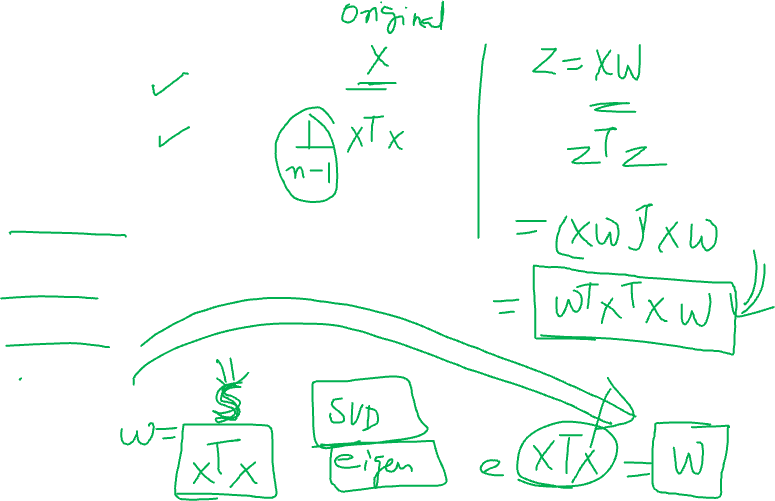 Original
X
1/n-1 XᵀX
Z = XW
ZᵀZ
= (XW)ᵀXW
= WᵀXᵀXW
W = XᵀX
SVD
eigen
e XᵀX = W